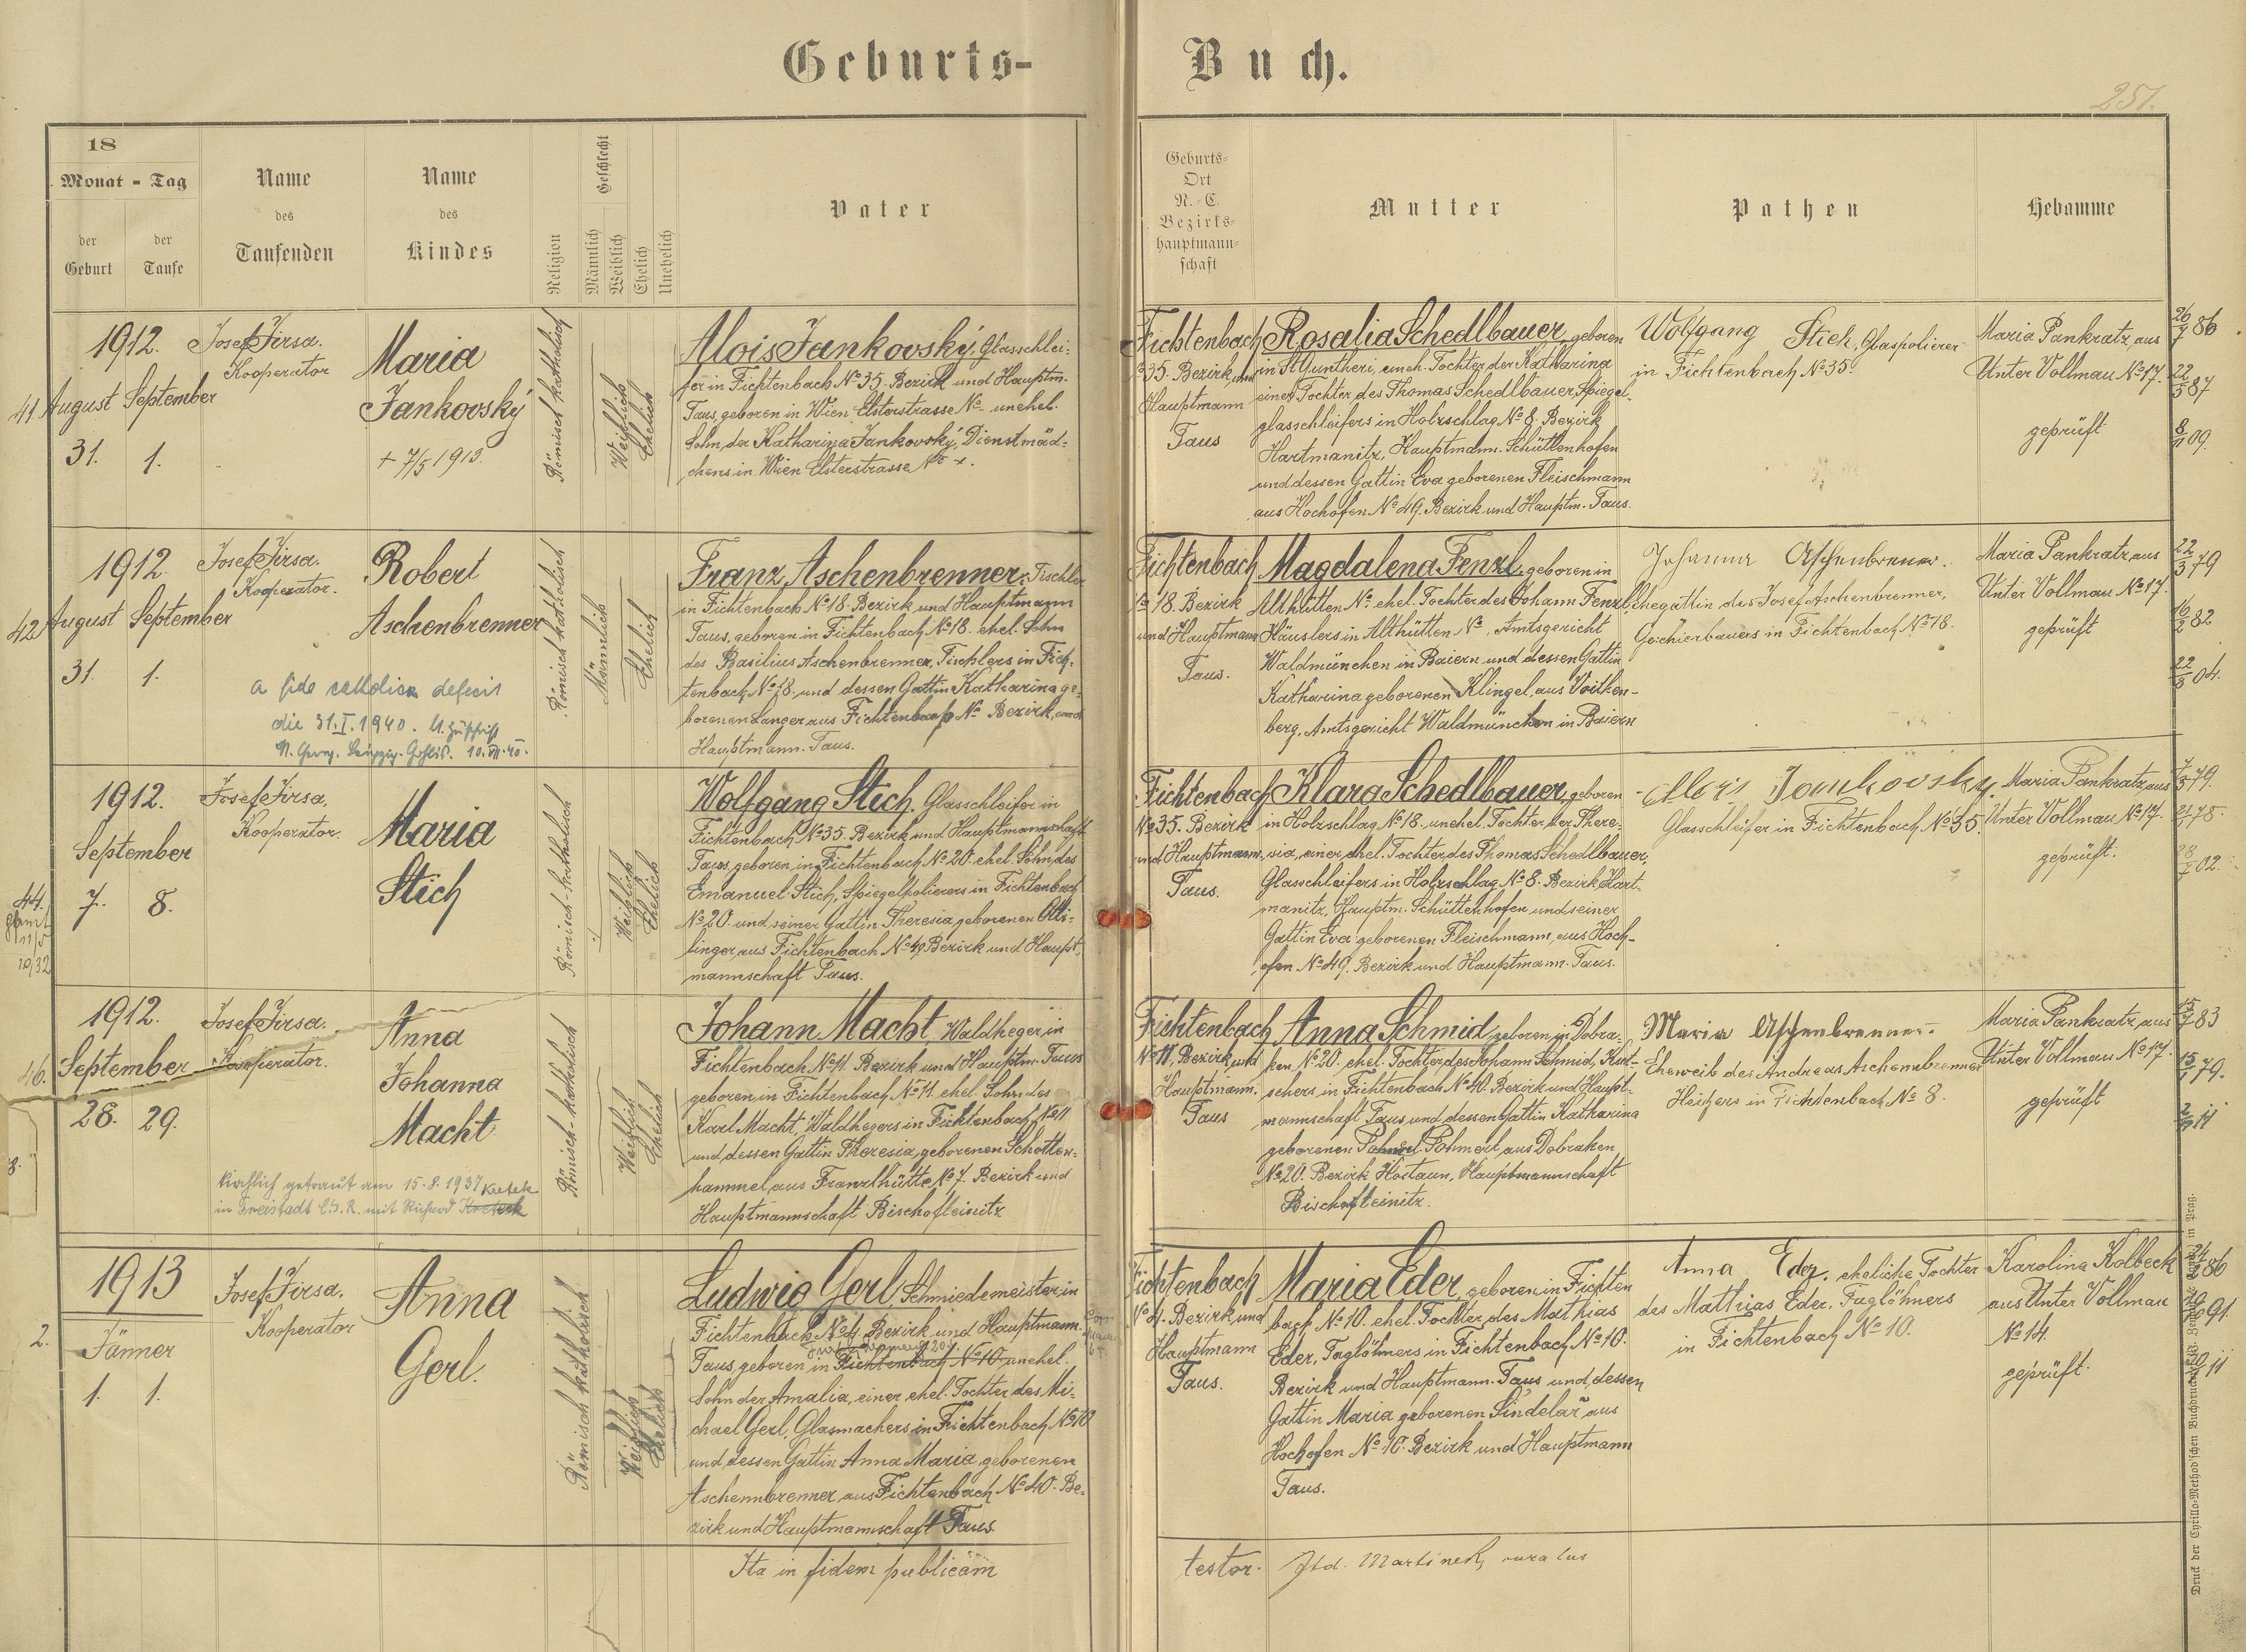 Geburts-Buch.
251.
18
Monat - Tag
der Geburt
der Taufe
Name des Taufenden
Name des Kindes
Religion
Geschlecht
Männlich
Weiblich
Ehelich
Unehelich
Vater
Geburts-
Ort
N.-C.
Bezirks-
hauptmann-
schaft
Mutter
Pathen
Hebamme
41
1912.
August September
31. 1.
Josef Jirsa.
Kooperator
Maria
Jankovský
+ 7/5 1913.
Römisch katholisch
Weiblich
Ehelich
Alois Jankovský, Glasschlei-
fer in Fichtenbach No 35. Bezirk und Hauptm.
Taus, geboren in Wien Elsterstrasse No - unehel.
Sohn der Katharina Jankovský, Dienstmäd-
chens in Wien Elsterstrasse No
Fichtenbach
No 35. Bezirk und
Hauptmann
Taus
Rosalia Schedlbauer, geboren
in St Guntheri, uneh. Tochter der Katharina
einer Tochter des Thomas Schedlbauer, Spiegel-
glasschleifers in Holzschlag No 8. Bezirk
Hartmanitz, Hauptmann. Schüttenhofen
und dessen Gattin Eva geborenen Fleischmann
aus Hochofen No 49. Bezirk und Hauptm. Taus.
Wolfgang Stich, Glaspolierer
in Fichtenbach No 35.
Maria Pankratz, aus
Unter Vollmau No 17.
geprüft
26/7 86
22/5 87
8/ 09.
42
1912
August September
31. 1.
Josef Jirsa.
Kooperator.
Robert
Aschenbrenner
a fide catholica defecit
die 31.I.1940.
10.VII.40.
Römisch katholisch
Männlich
Ehelich
Franz Aschenbrenner, Tischler
in Fichtenbach No 18. Bezirk und Hauptmann
Taus, geboren in Fichtenbach No 18. ehel. Sohn
des Basilius Aschenbrenner, Tischlers in Fich-
tenbach No 18. und dessen Gattin Katharina ge-
borenen Langer aus Fichtenbach No Bezirk und
Hauptmann. Taus.
Fichtenbach
No 18. Bezirk
und Hauptmann
Taus.
Magdalena Fenzl, geboren in
Althütten No ehel. Tochter des Johann Fenzl,
Häuslers in Althütten No, Amtsgericht
Waldmünchen in Baiern und dessen Gattin
Katharina geborenen Klingel, aus Voithen-
berg, Amtsgericht Waldmünchen in Baiern
Johanna Aschenbrenner.
Ehegattin des Josef Aschenbrenner,
Gechierbauers in Fichtenbach No 18.
Maria Pankratz aus
Unter Vollmau No 17.
geprüft
22/3 79
16/2 82
22/5 04.
44.
11/5
1932
1912.
September
7. 8.
Josef Jirsa,
Kooperator.
Maria
Stich
Römisch-katholisch
Weiblich
Ehelich
Wolfgang Stich, Glasschleifer in
Fichtenbach No 35. Bezirk und Hauptmannschaft
Taus, geboren in Fichtenbach No 20. ehel. Sohn des
Emanuel Stich, Spiegelpolierers in Fichtenbach
No 20 und seiner Gattin Theresia geborenen Otti-
linger aus Fichtenbach No 49. Bezirk und Haupt-
mannschaft Taus.
Fichtenbach
No 35. Bezirk
und Hauptmann,
Taus.
Klara Schedlbauer, geboren
in Holzschlag No 18. unehel. Tochter der There-
sia, einer ehel. Tochter des Thomas Schedlbauer,
Glasschleifers in Holzschlag No 8. Bezirk Hart-
manitz, Hauptm. Schüttenhofen und seiner
Gattin Eva geborenen Fleischmann, aus Hoch-
ofen No 49. Bezirk und Hauptmann. Taus.
Alois Jankovský.
Glasschleifer in Fichtenbach No 35.
Maria Pankratz, aus
Unter Vollmau No 17.
geprüft.
7/3 79.
21/ 78.
28/7 02.
46.
1912.
September
28. 29.
Josef Jirsa.
Kooperator.
Anna
Johanna
Macht
kirchlich getraut am 15.8.1937
in Freistadt Č.S.R. mit Richard
Römisch-katholisch
Weiblich
Ehelich
Johann Macht, Waldheger in
Fichtenbach No 11. Bezirk und Hauptm. Taus
geboren in Fichtenbach No 11. ehel. Sohn des
Karl Macht, Waldhegers in Fichtenbach No 11
und dessen Gattin Theresia, geborenen Schotten-
hammel, aus Franzlhütte No 7. Bezirk und
Hauptmannschaft Bischofteinitz
Fichtenbach
No 11, Bezirk und
Hauptmann.
Taus
Anna Schmid, geboren in Dobra-
ken No 20. ehel. Tochter des Johann Schmid, Kut-
schers in Fichtenbach No 40. Bezirk und Haupt-
mannschaft Taus und dessen Gattin Katharina
geborenen Pohmerl, aus Dobraken
No 20. Bezirk Hostaun, Hauptmannschaft
Bischofteinitz.
Maria Aschenbrenner.
Eheweib des Andreas Aschenbrenner
Heizers in Fichtenbach No 8.
Maria Pankratz, aus
Unter Vollmau No 17.
geprüft
15/7 83
15/1 79.
2/9 11
2.
1913
Jänner
1. 1.
Josef Jirsa,
Kooperator
Anna
Gerl.
Römisch katholisch
Weiblich
Ehelich
Ludwig Gerl, Schmiedemeister in
Fichtenbach No 4. Bezirk und Hauptmann.
Taus, geboren in Fichtenbach No 10, unehel.
Sohn der Amalia, einer ehel. Tochter des Mi-
chael Gerl, Glasmachers in Fichtenbach No 10
und dessen Gattin Anna Maria geborenen
Aschennbrenner aus Fichtenbach No 40. Be-
zirk und Hauptmannschaft Taus
Fichtenbach
No 4. Bezirk und
Hauptmann
Taus.
Maria Eder, geboren in Fichten
bach No 10. ehel. Tochter des Mathias
Eder, Taglöhners in Fichtenbach No 10.
Bezirk und Hauptmann. Taus und dessen
Gattin Maria geborenen Šindelař aus
Hochofen No 10. Bezirk und Hauptmann
Taus.
Anna Eder, eheliche Tochter
des Matthias Eder, Taglöhners
in Fichtenbach No 10.
Karolina Kolbeck
aus Unter Vollmau
No 14.
geprüft.
Ita in fidem publicam
testor. Ftd. Martinek, curatus
Druck der Cyrillo-Method'schen Buchdruckerei in Prag.